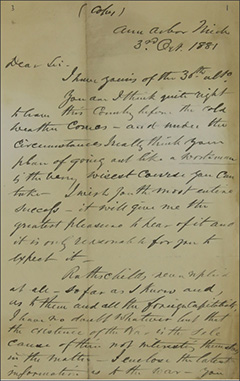 (Copy)
Ann Arbor Mich
3rd Oct 1881
Dear Sir -
I have yours of the 30th ulto.
You are I think quite right
to leave this Country before the cold
weather comes - and under the
circumstances I really think your
plan of going out like a workman
is the very wisest course you can
take - I wish you the most entire
success - it will give me the
greatest pleasure to hear of it and
it is only reasonable for you to
expect it -
Rothschilds never replied
at all - so far as I know and
as to them and all the foreign Capitalists
I have no doubt whatever but that
the existence of the War is the sole
cause of their not interesting themselves
in the matter - I enclose the latest
information as to the war - You